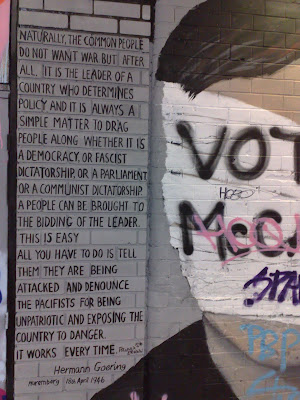 NATURALLY, THE COMMON PEOPLE
DO NOT WANT WAR BUT AFTER
ALL, IT IS THE LEADER OF A
COUNTRY WHO DETERMINES
POLICY AND IT IS ALWAYS A
SIMPLE MATTER TO DRAG
PEOPLE ALONG WHETHER IT IS
A DEMOCRACY, OR FASCIST
DICTATORSHIP, OR A PARLIAMENT
OR A COMMUNIST DICTATORSHIP.
A PEOPLE CAN BE BROUGHT TO
THE BIDDING OF THE LEADER.
THIS IS EASY
ALL YOU HAVE TO DO IS TELL
THEM THEY ARE BEING
ATTACKED AND DENOUNCE
THE PACIFISTS FOR BEING
UNPATRIOTIC AND EXPOSING THE
COUNTRY TO DANGER.
IT WORKS EVERY TIME.
Hermann Goering
Nuremberg 18th April 1946
VOT
HOBO